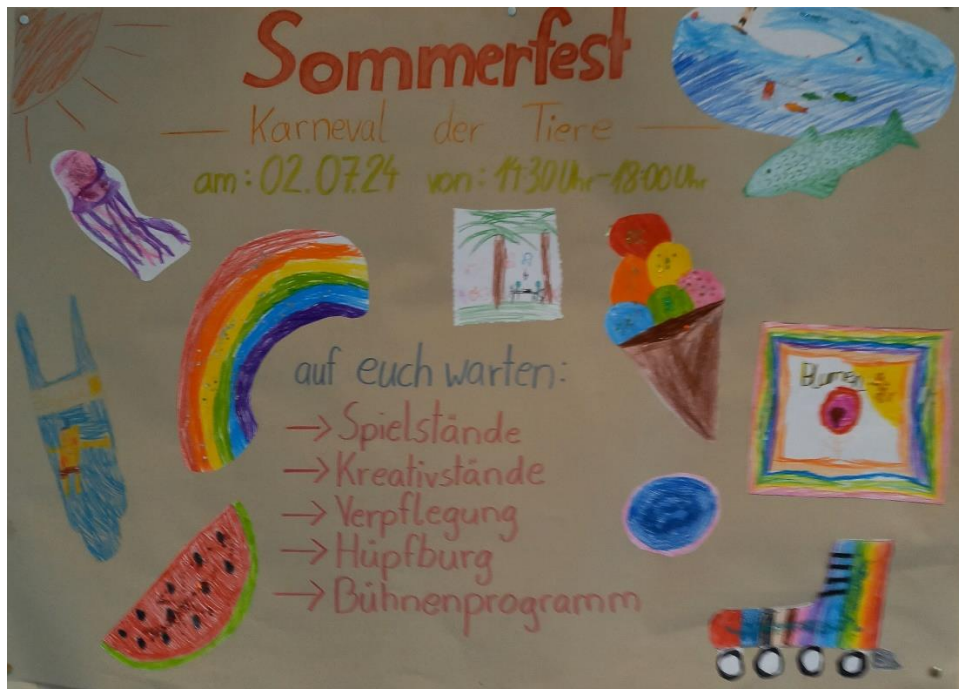 Sommerfest
Karneval der Tiere
am: 02.07.24 von: 14:30 Uhr - 18:00 Uhr
auf euch warten:
→ Spielstände
→ Kreativstände
→ Verpflegung
→ Hüpfburg
→ Bühnenprogramm
Blumen